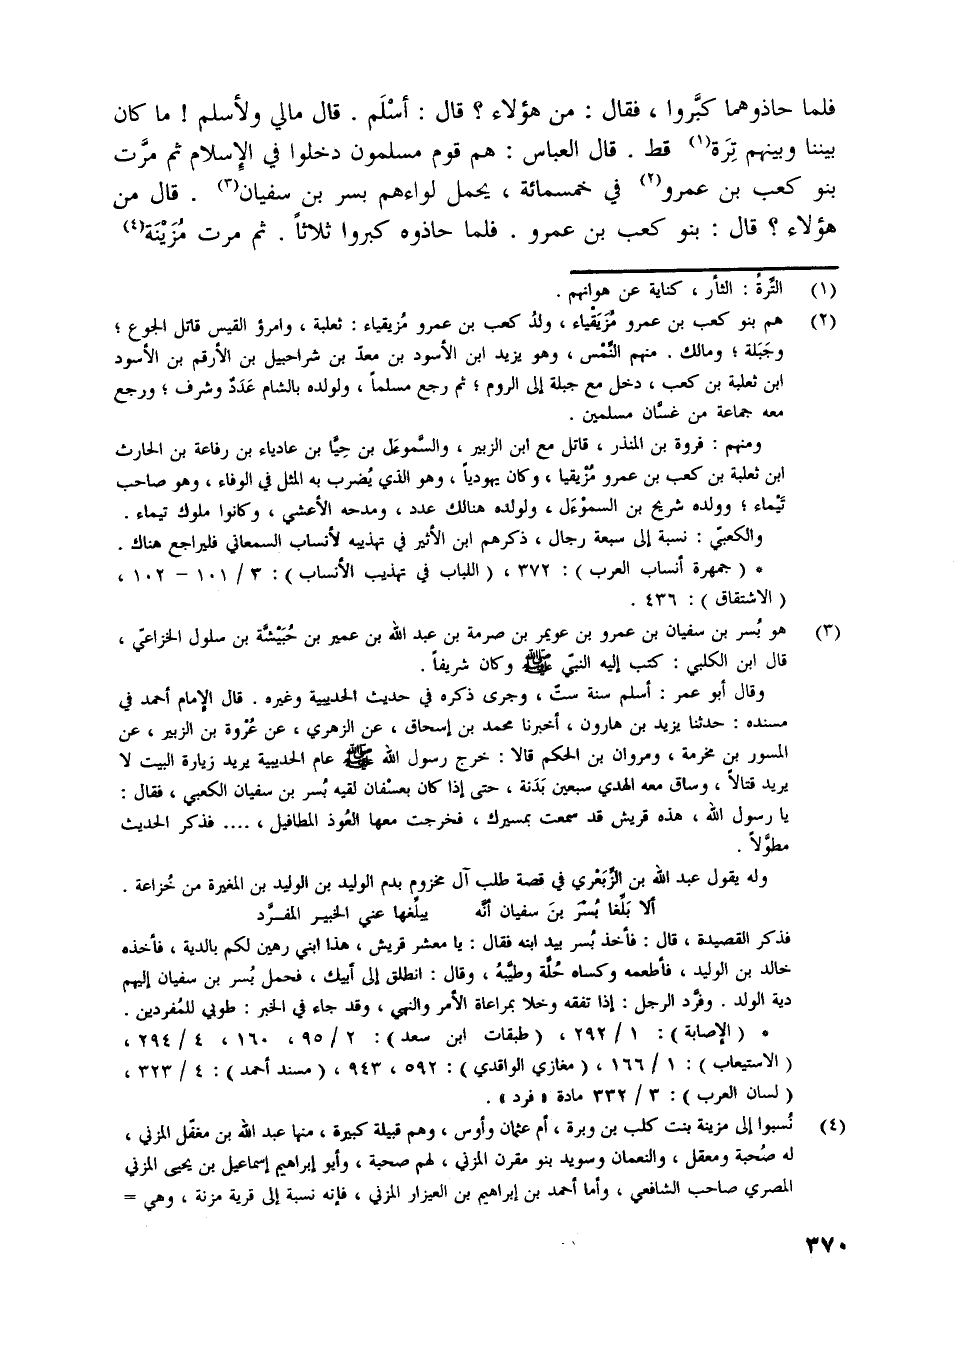 فلما حاذوهما كبَّروا ، فقال : من هؤلاء ؟ قال : أسْلَم . قال مالي ولأسلم ! ما كان
بيننا وبينهم تِرَة(١) قط . قال العباس : هم قوم مسلمون دخلوا في الإسلام ثم مرَّت
بنو كعب بن عمرو(٢) في خمسمائة ، يحمل لواءهم بسر بن سفيان(٣) . قال من
هؤلاء ؟ قال : بنو كعب بن عمرو . فلما حاذوه كبروا ثلاثاً . ثم مرت مُزَيْنَة(٤)
(١) التِّرةُ : الثأر ، كناية عن هوانهم .
(٢) هم بنو كعب بن عمرو مُزَيَقْياء ، ولدُ كعب بن عمرو مُزيقياء : ثعلبة ، وامرؤ القيس قاتل الجوع ؛
وجَبَلة ؛ ومالك . منهم النَّمْس ، وهو يزيد ابن الأسود بن معدّ بن شراحبيل بن الأرقم بن الأسود
ابن ثعلبة بن كعب ، دخل مع جبلة إلى الروم ؛ ثم رجع مسلماً ، ولولده بالشام عَدَدٌ وشرف ؛ ورجع
معه جماعة من غسَّان مسلمين .
ومنهم : فروة بن المنذر ، قاتل مع ابن الزبير ، والسَّموءَل بن حِيَّا بن عادياء بن رفاعة بن الحارث
ابن ثعلبة بن كعب بن عمرو مُزْيقيا ، وكان يهودياً ، وهو الذي يُضرب به المثل في الوفاء ، وهو صاحب
تَيْماء ؛ وولده شريح بن السموْءَل ، ولولده هنالك عدد ، ومدحه الأعشى ، وكانوا ملوك تيماء .
والكعبيّ : نسبة إلى سبعة رجال ، ذكرهم ابن الأثير في تهذيبه لأنساب السمعاني فليراجع هناك .
* ( جمهرة أنساب العرب ) : ٣٧٢ ، ( اللباب في تهذيب الأنساب ) : ٣ / ١٠١ – ١٠٢ ،
( الاشتقاق ) : ٤٣٦ .
(٣) هو بُسر بن سفيان بن عمرو بن عويمر بن صرمة بن عبد الله بن عمير بن حُبَيْشَّة بن سلول الخزاعيّ ،
قال ابن الكلبي : كتب إليه النبيّ ﷺ وكان شريفاً .
وقال أبو عمر : أسلم سنة ستّ ، وجرى ذكره في حديث الحديبية وغيره . قال الإمام أحمد في
مسنده : حدثنا يزيد بن هارون ، أخبرنا محمد بن إسحاق ، عن الزهري ، عن عُرْوة بن الزبير ، عن
المسور بن مخرمة ، ومروان بن الحكم قالا : خرج رسول الله ﷺ عام الحديبية يريد زيارة البيت لا
يريد قتالاً ، وساق معه الهدي سبعين بَدَنة ، حتى إذا كان بعسْفان لقيه بُسر بن سفيان الكعبي ، فقال :
يا رسول الله ، هذه قريش قد سمعت بمسيرك ، فخرجت معها العُوذ المطافيل ، .... فذكر الحديث
مطوَّلاً .
وله يقول عبد الله بن الزِّبَعْري في قصة طلب آل مخزوم بدم الوليد بن الوليد بن المغيرة من خُزاعة .
ألا بَلِّغا بُسْرَ بنَ سفيان أنَّه يبلِّغها عني الخبيـر المفـرَّد
فذكر القصيدة ، قال : فأخذ بُسر بيد ابنه فقال : يا معشر قريش ، هذا ابني رهين لكم بالدية ، فأخذه
خالد بن الوليد ، فأطعمه وكساه حُلَّة وطيَّبهُ ، وقال : انطلق إلى أبيك ، فحمل بُسر بن سفيان إليهم
دية الولد . وفرَّد الرجل : إذا تفقه وخلا بمراعاة الأمر والنهي ، وقد جاء في الخبر : طوبى للمُفردين .
* ( الإصابة ) : ١ / ٢٩٢ ، ( طبقات ابن سعد ) : ٢ / ٩٥ ، ١٦٠ ، ٤ / ٢٩٤ ،
( الاستيعاب ) : ١ / ١٦٦ ، ( مغازي الواقدي ) : ٥٩٢ ، ٩٤٣ ، ( مسند أحمد ) : ٤ / ٣٢٣ ،
( لسان العرب ) : ٣ / ٣٣٢ مادة « فرد » .
(٤) نُسبوا إلى مزينة بنت كلب بن وبرة ، أم عثمان وأوس ، وهم قبيلة كبيرة ، منها عبد الله بن مغفّل المزني ،
له صُحبة ومعقل ، والنعمان وسويد بنو مقرن المزني ، لهم صحبة ، وأبو إبراهيم إسماعيل بن يحيى المزني
المصري صاحب الشافعي ، وأما أحمد بن إبراهيم بن العيزار المزني ، فإنه نسبة إلى قرية مزنة ، وهي =
٣٧٠